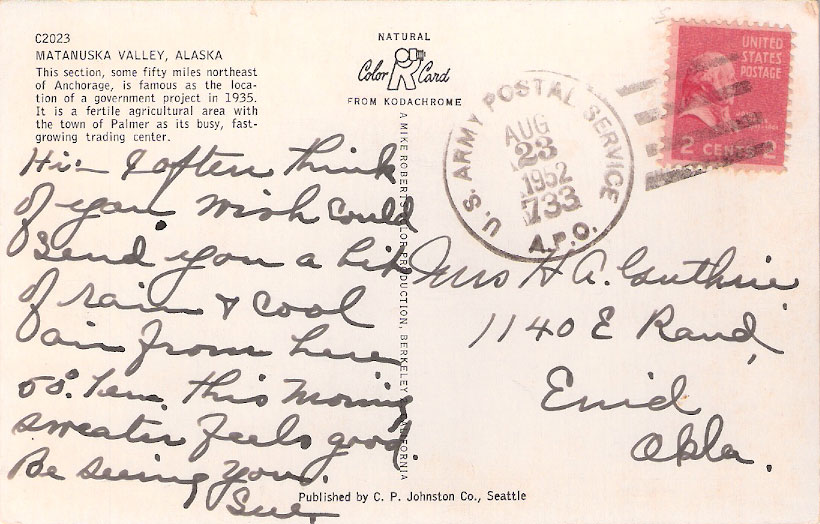 C2023
MATANUSKA VALLEY, ALASKA
This section, some fifty miles northeast
of Anchorage, is famous as the loca-
tion of a government project in 1935.
It is a fertile agricultural area with
the town of Palmer as its busy, fast-
growing trading center.
NATURAL
Color Card
FROM KODACHROME
A MIKE ROBERTS COLOR PRODUCTION, BERKELEY 2, CALIFORNIA
UNITED
STATES
POSTAGE
2 CENTS 2
U.S. ARMY POSTAL SERVICE
AUG
23
1952
733
A.P.O.
Hi- I often think
of you. Wish could
send you a bit
of rain & cool
air from here
50° Tem. this morning
sweater feels good.
Be seeing you.
Sue
Mrs H. A. Guthrie
1140 E Rand,
Enid
Okla.
Published by C. P. Johnston Co., Seattle